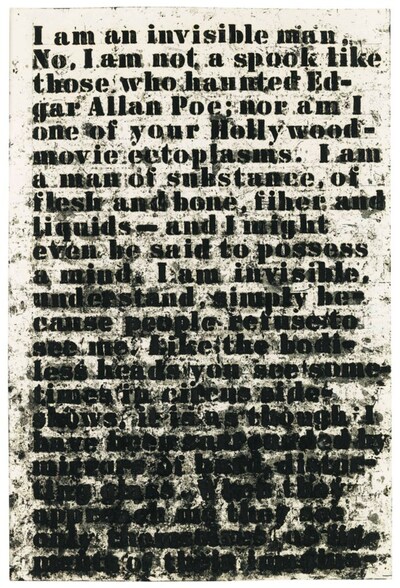 I am an invisible man.
No, I am not a spook like
those who haunted Ed-
gar Allan Poe; nor am I
one of your Hollywood-
movie ectoplasms. I am
a man of substance, of
flesh and bone, fiber and
liquids— and I might
even be said to possess
a mind. I am invisible,
understand, simply be-
cause people refuse to
see me. Like the bodi-
less heads you see some-
times in circus side-
shows, it is as though I
have been surrounded by
mirrors of hard, distor-
ting glass. When they
approach me they see
only themselves,